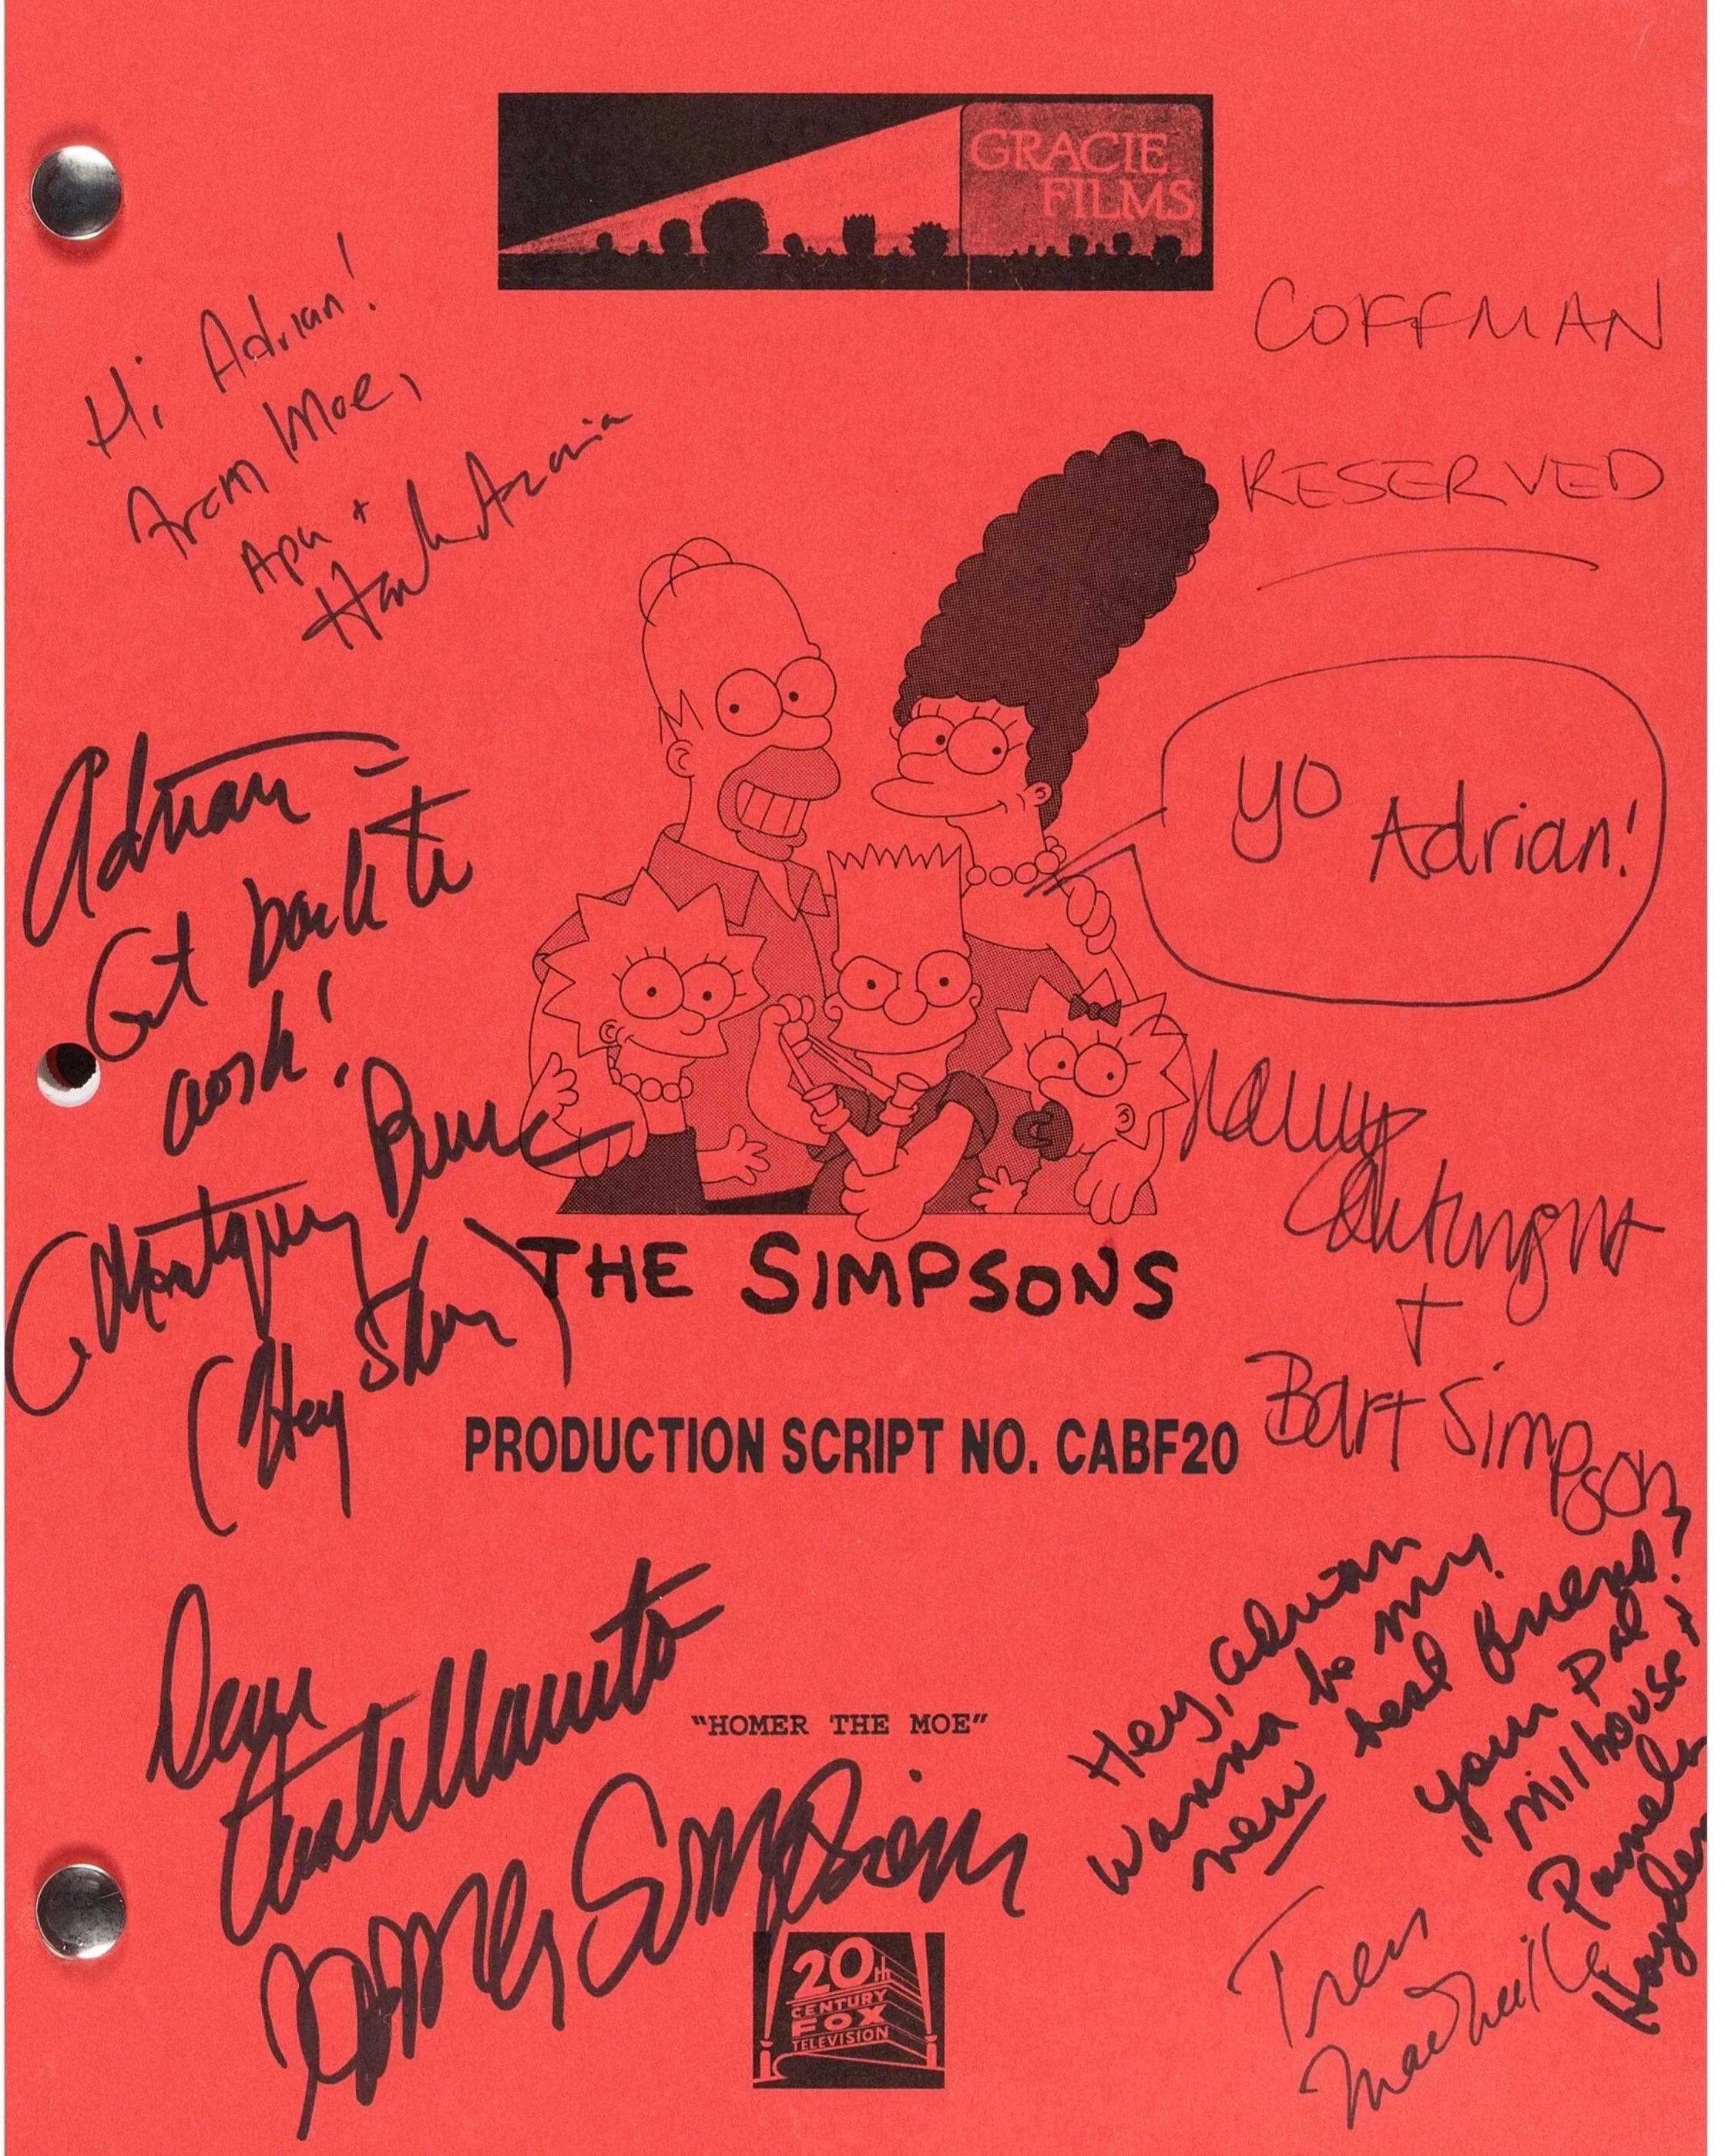 GRACIE
FILMS
Hi Adrian!
From Moe,
Apu +
Hank Azaria
COFFMAN
RESERVED
YO
Adrian!
Adrian –
Get back to
work!
C. Montgomery Burns
(Harry Shearer)
Nancy
Cartwright
+
Bart Simpson
THE SIMPSONS
PRODUCTION SCRIPT NO. CABF20
Dan
Castellaneta
Homer Simpson
"HOMER THE MOE"
Hey, Adrian
Wanna be my
new best friend?
Your Pal
Milhouse!
+
Pamela
Hayden
Tress
MacNeille
20th
CENTURY
FOX
TELEVISION